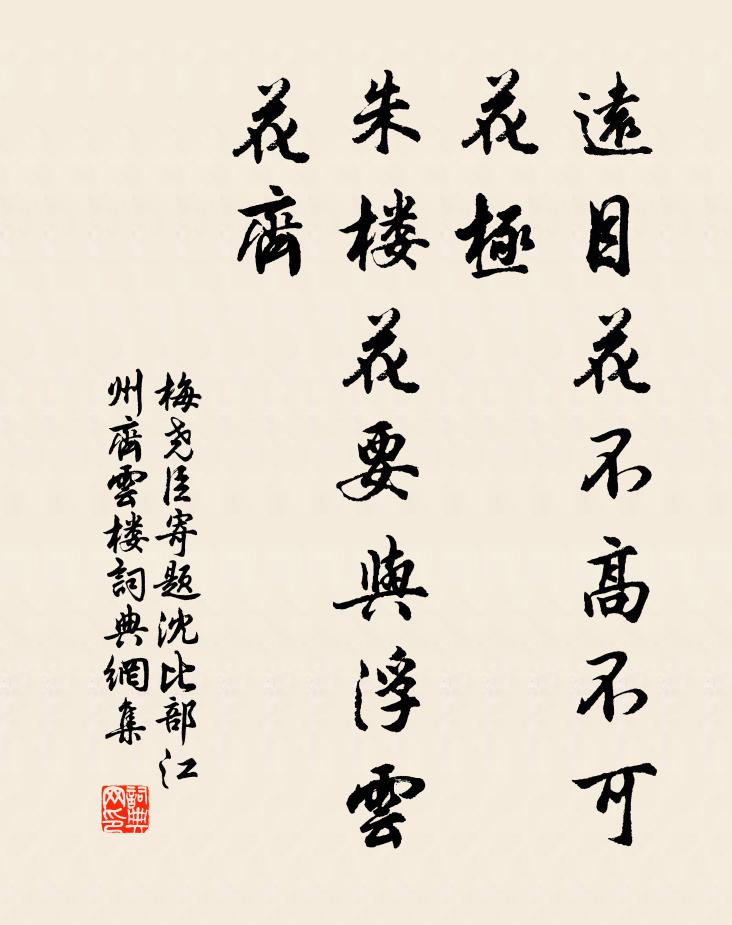 遠目花不高不可
花極
朱楼花要與浮雲
花齊
梅尧臣寄题沈比部江
州齊雲楼詞典網集
詞典
网印